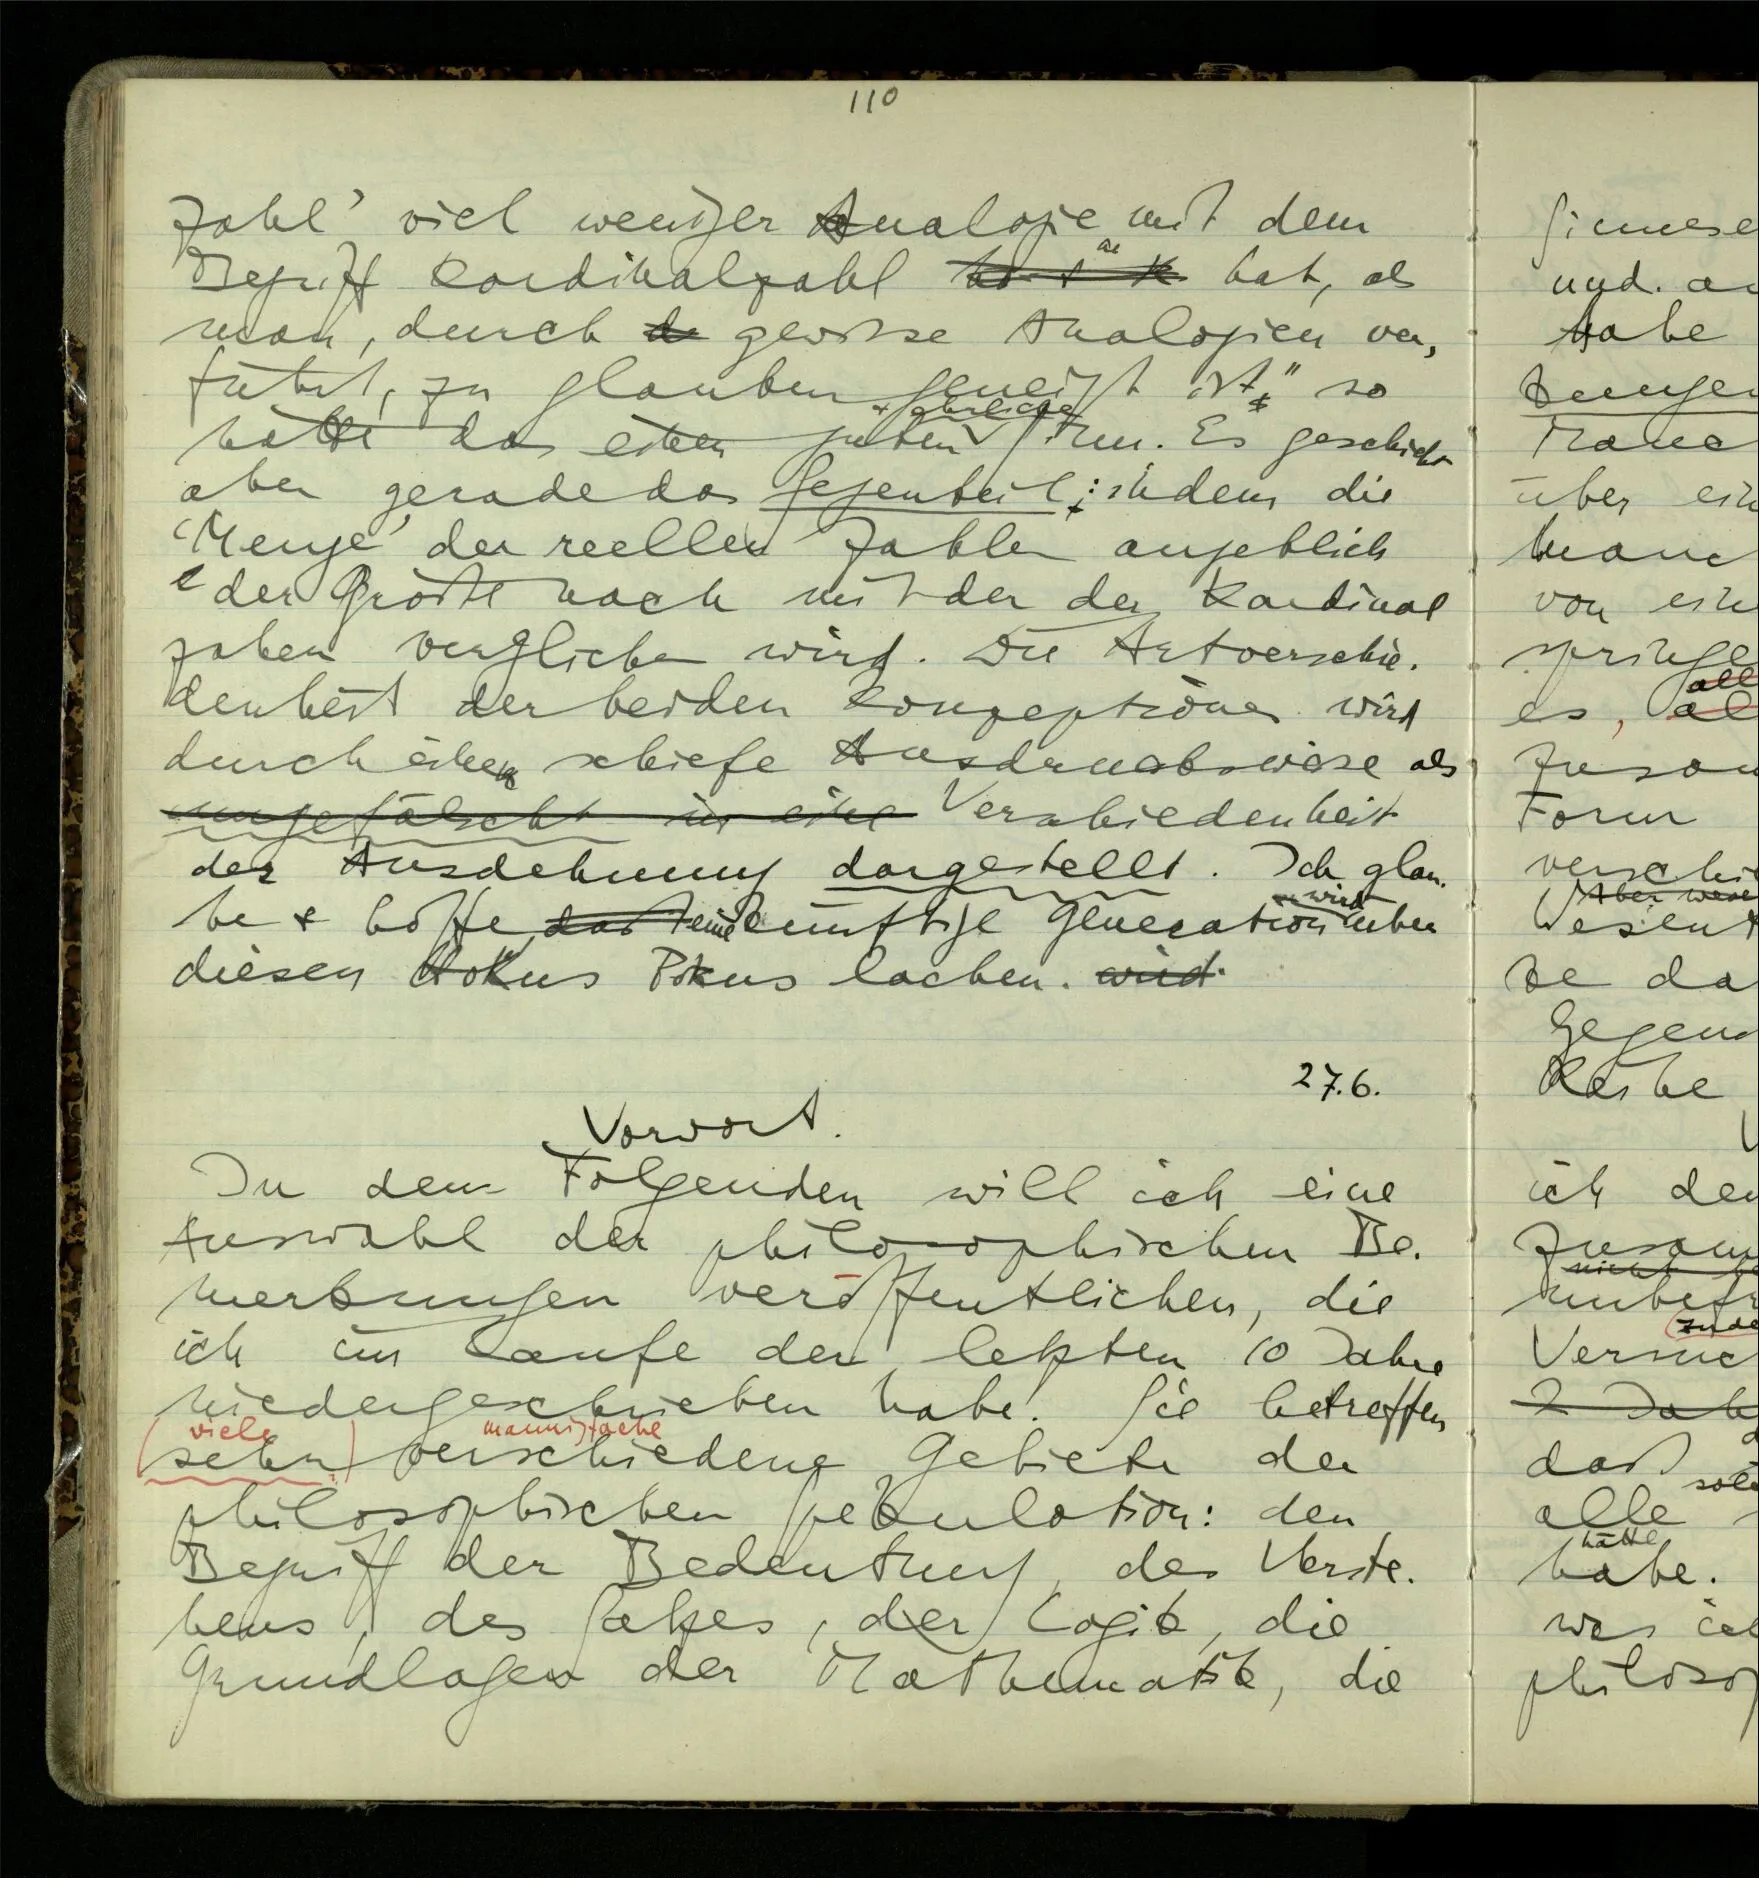 110
Zahl' viel weniger Analogie mit dem
Begriff Kardinalzahl hat, als
man, durch gewisse Analogien ver,
führt, zu glauben geneigt ist" so
+ ehrlichen
hätte das einen guten Sinn. Es geschieht
aber gerade das Gegenteil; indem die
‘Menge’ der reellen Zahlen angeblich
der Größe nach mit der der Kardinal
zahlen verglichen wird. Die Artverschie-
denheit der beiden Konzeptionen wird
durch eine schiefe Ausdrucksweise als
umgefälscht in eine Verschiedenheit
der Ausdehnung dargestellt. Ich glau-
wird
be & hoffe, daß eine künftige Generation über
diesen Hokus Pokus lachen. wird.
27.6.
Vorwort.
In dem Folgenden will ich eine
Auswahl der philosophischen Be-
merkungen veröffentlichen, die
ich im Laufe der letzten 10 Jahre
niedergeschrieben habe. Sie betreffen
viele mannigfache
(sehr) verschiedene Gebiete der
philosophischen Spekulation: den
Begriff der Bedeutung, des Verste-
hens, des Satzes, der Logik, die
Grundlagen der Mathematik, die
Sinnes
und. an
habe
über ein
von ein
springe
es, al
Form
verschie
Aber wese
Wesent
se da
Gegen
Reihe
ich den
Zusam
Versuc
daß
alle
hätte
habe.
was ich
philosop